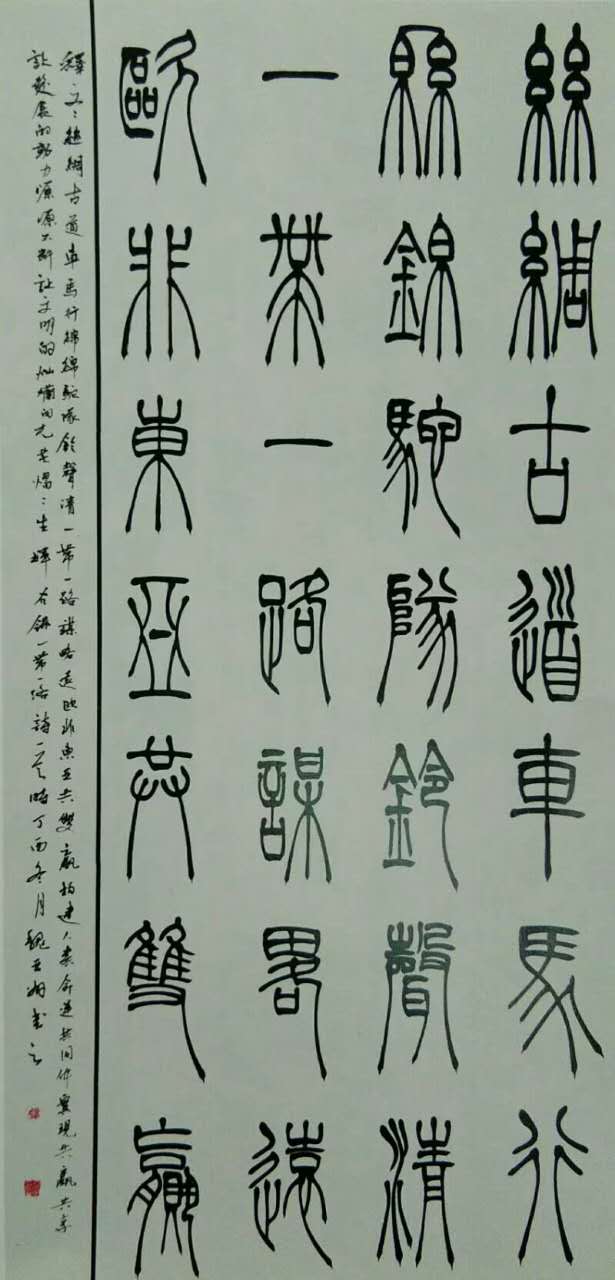 絲綢古道車馬行
緜錦駝隊鈴聲清
一帶一路謀畧遠
歐非東亞共雙贏
釋文：絲綢古道車馬行綿綿駝隊鈴聲清一帶一路謀略遠歐非東亞共雙贏构建人类命運共同体實現共贏共享
让發展的動力源源不断让文明的灿爛的光芒熠〻生輝右錄一帶一路詩一首時丁酉冬月魏亚書